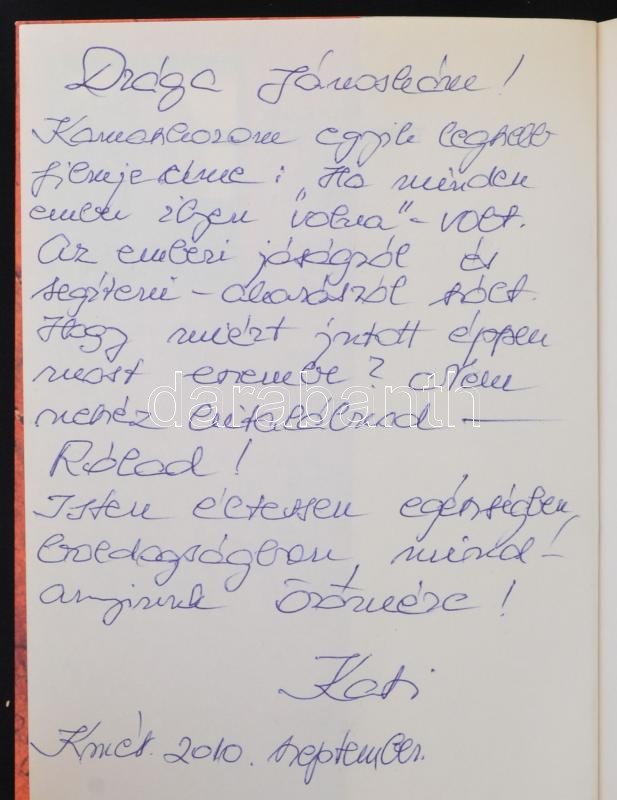 Drága Jánoskám!
Kamaszkorom egyik legszebb
filmje címe: "Ha minden
ember ilyen volna" - volt.
Az emberi jóságról és
segíteni-akarásról szólt.
Hogy miért jutott éppen
most eszembe? Nem
nehéz kitalálnod —
Rólad!
Isten éltessen egészségben,
boldogságban, mind-
annyiunk örömére!
Kati
Kmét. 2010. szeptember.
darabanth